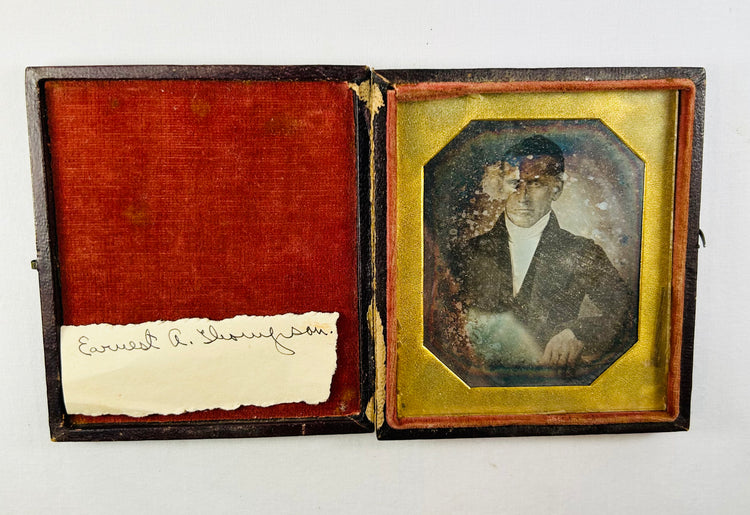 Earnest A. Thompson.